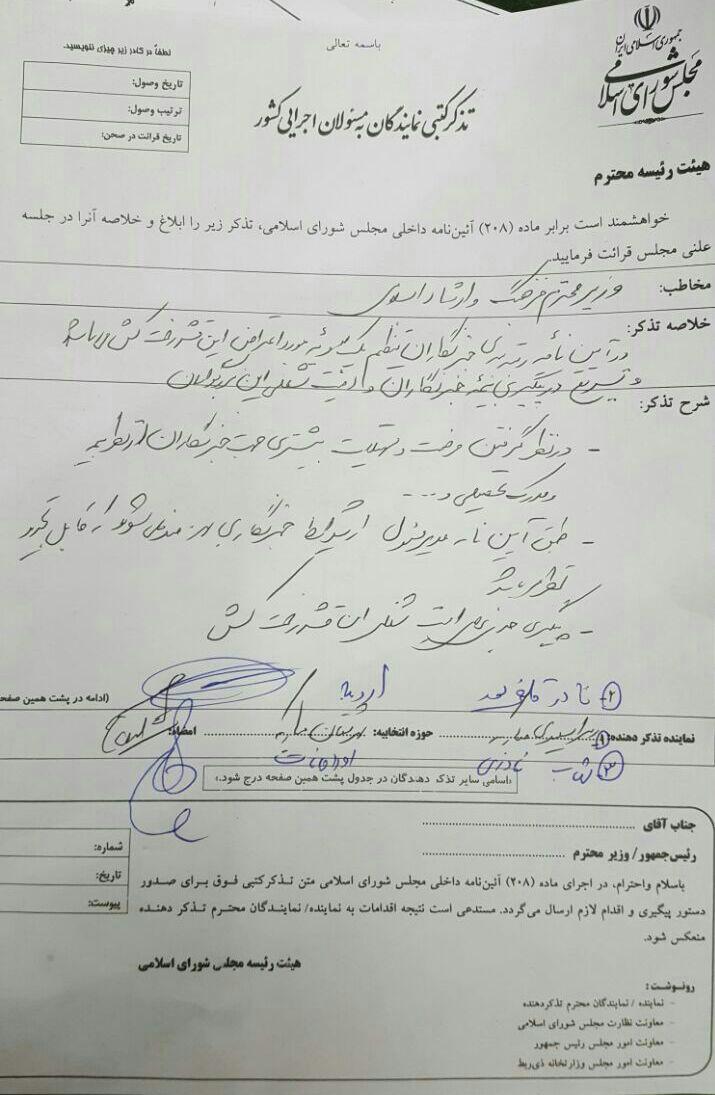 جمهوری اسلامی ایران
مجلس شورای اسلامی
باسمه تعالی
لطفاً در کادر زیر چیزی ننویسید.
تاریخ وصول:
ترتیب وصول:
تاریخ قرائت در صحن:
تذکر کتبی نمایندگان به مسئولان اجرایی کشور
هیئت رئیسه محترم
خواهشمند است برابر ماده (۲۰۸) آئین‌نامه داخلی مجلس شورای اسلامی، تذکر زیر را ابلاغ و خلاصه آنرا در جلسه
علنی مجلس قرائت فرمایید.
مخاطب: وزیر محترم فرهنگ و ارشاد اسلامی
خلاصه تذکر: در آیین نامه رتبه بندی خبرنگاران تنظیم یک سویه مورد اعتراض این قشر زحمت کش می باشد
و تسریع در پیگیری بیمه خبرنگاران و امنیت شغلی این
شرح تذکر:
- در نظر گرفتن فرصت و تسهیلات بیشتری جهت خبرنگاران از نظر بیمه
و مدرک تحصیلی و ...
- طبق آیین نامه مدیر مسئول از شرایط خبرنگاری می شوند که قابل تجدید
نظر می باشد
- پیگیری جدی امنیت شغلی این قشر زحمت کش
(ادامه در پشت همین صفحه
۲- نادر قاضی پور ارومیه
نماینده تذکر دهنده: ۱ حوزه انتخابیه: امضاء:
۳ شهاب نادری اورامانات
«اسامی سایر تذکر دهندگان در جدول پشت همین صفحه درج شود.»
جناب آقای
رئیس‌جمهور/ وزیر محترم
باسلام واحترام، در اجرای ماده (۲۰۸) آئین‌نامه داخلی مجلس شورای اسلامی متن تذکر کتبی فوق برای صدور
دستور پیگیری و اقدام لازم ارسال می‌گردد. مستدعی است نتیجه اقدامات به نماینده/ نمایندگان محترم تذکر دهنده
منعکس شود.
شماره:
تاریخ:
پیوست:
هیئت رئیسه مجلس شورای اسلامی
رونوشت:
- نماینده / نمایندگان محترم تذکردهنده
- معاونت نظارت مجلس شورای اسلامی
- معاونت امور مجلس رئیس جمهور
- معاونت امور مجلس وزارتخانه ذی‌ربط